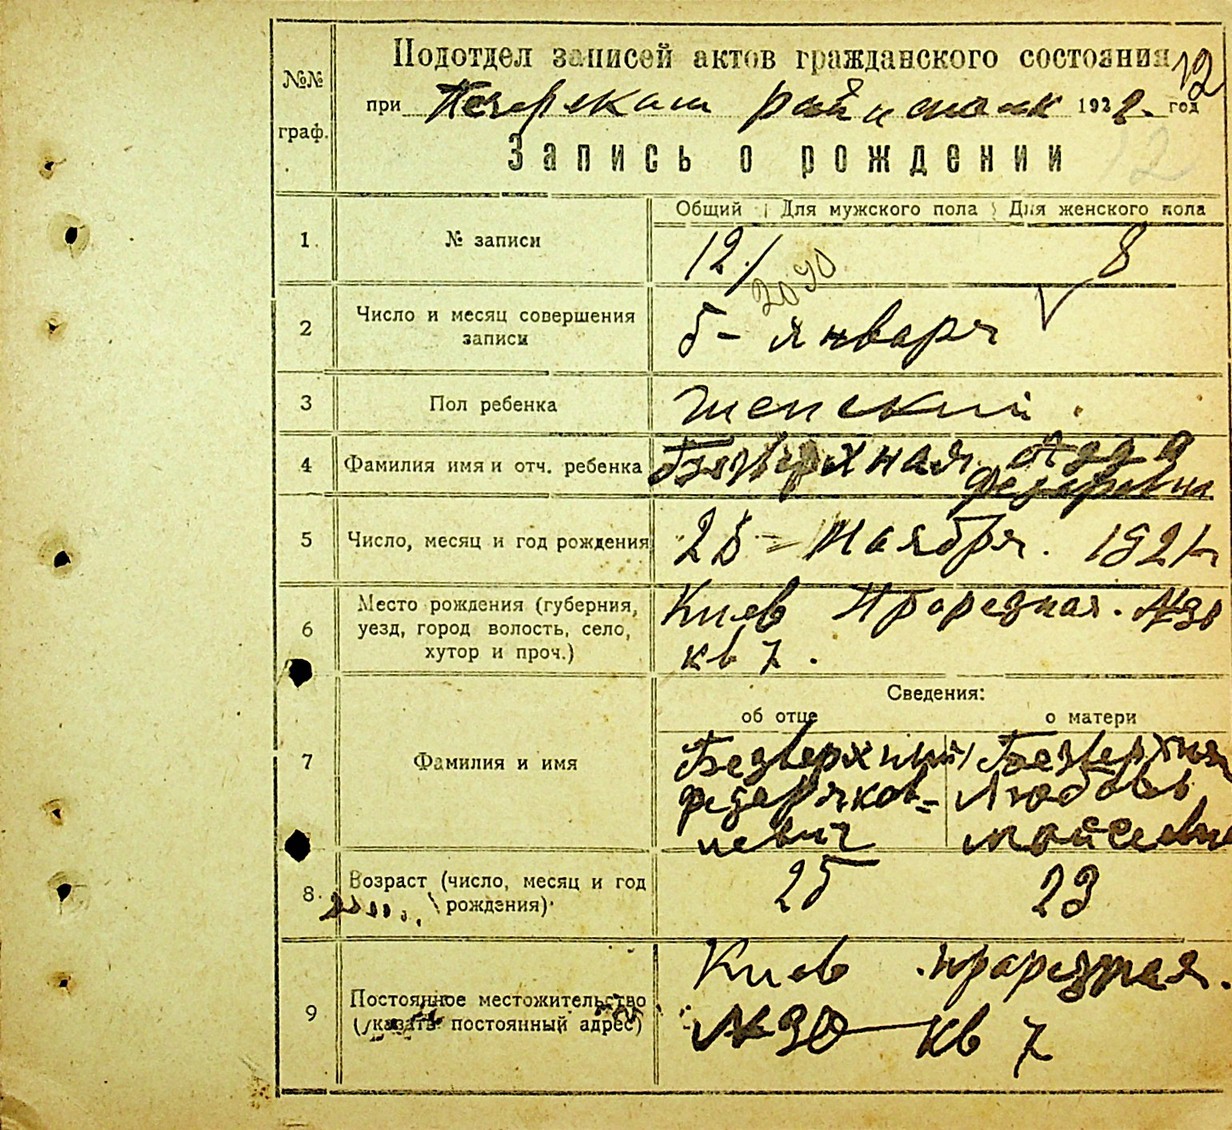 Подотдел записей актов гражданского состояния 12
№№ граф.
при 1922 год
Запись о рождении
12
Общий Для мужского пола Для женского пола
1 № записи 12/ 8
2 Число и месяц совершения записи 5 - января
3 Пол ребенка Женский.
4 Фамилия имя и отч. ребенка Безверхная
5 Число, месяц и год рождения 28 - Ноября. 1921
6 Место рождения (губерния, уезд, город волость, село, хутор и проч.) Киев Прорезная. №30
кв 7.
Сведения:
об отце о матери
7 Фамилия и имя
Безверхний Безверхняя
Любовь
8 Возраст (число, месяц и год рождения) 25 23
9 Постоянное местожительство (указать постоянный адрес) Киев прорезная.
№30 - кв 7